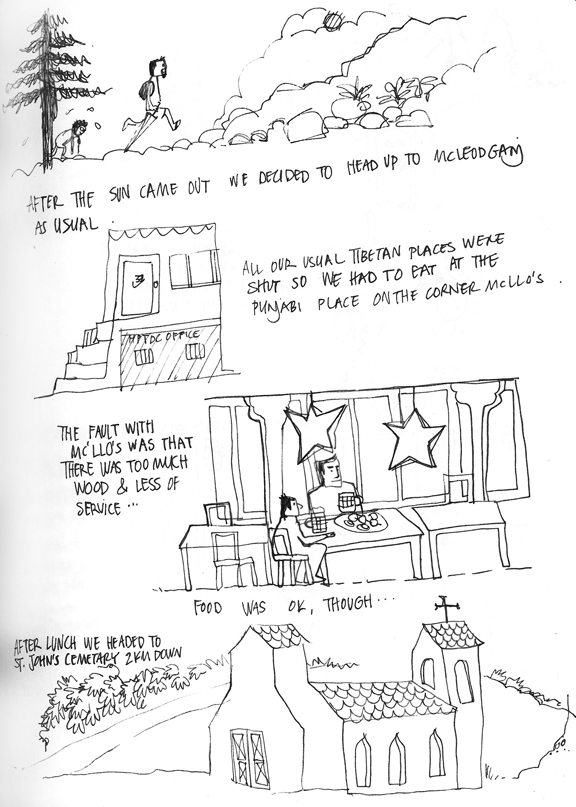 AFTER THE SUN CAME OUT WE DECIDED TO HEAD UP TO MCLEODGANJ
AS USUAL.
ALL OUR USUAL TIBETAN PLACES WERE
SHUT SO WE HAD TO EAT AT THE
PUNJABI PLACE ON THE CORNER MCLLO'S.
HPTDC OFFICE
THE FAULT WITH
MC'LLO'S WAS THAT
THERE WAS TOO MUCH
WOOD & LESS OF
SERVICE...
FOOD WAS OK, THOUGH...
AFTER LUNCH WE HEADED TO
ST. JOHN'S CEMETARY 2KM DOWN